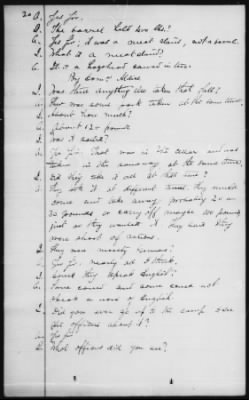 20 A. Yes Sir.
Q. The barrel held two lbs?
A. No Sir; it was a meat stand, not a barrel.
Q. What is a meat stand?
A. It is a hogshead sawed in two.
By Com'r Aldis
Q. Was there anything else taken that fall?
A. There was some pork taken at the same time.
Q. About how much?
A. About 125 pounds
Q. Was it salted?
A. Yes Sir. That was in the cellar and was
taken in the same way at the same time.
Q. Did they take it all at that time?
A. They took it at different times. They would
come and take away probably 20 or
30 pounds or carry off maybe 100 pounds
just as they wanted it. They said they
were short of rations.
Q. They were mostly Germans?
A. Yes Sir; nearly all I think.
Q. Could they speak English?
A. Some could and some could not
speak a word of English
Q. Did you ever go up to the camp and see
the officers about it?
A. Yes Sir
Q. What officer did you see?